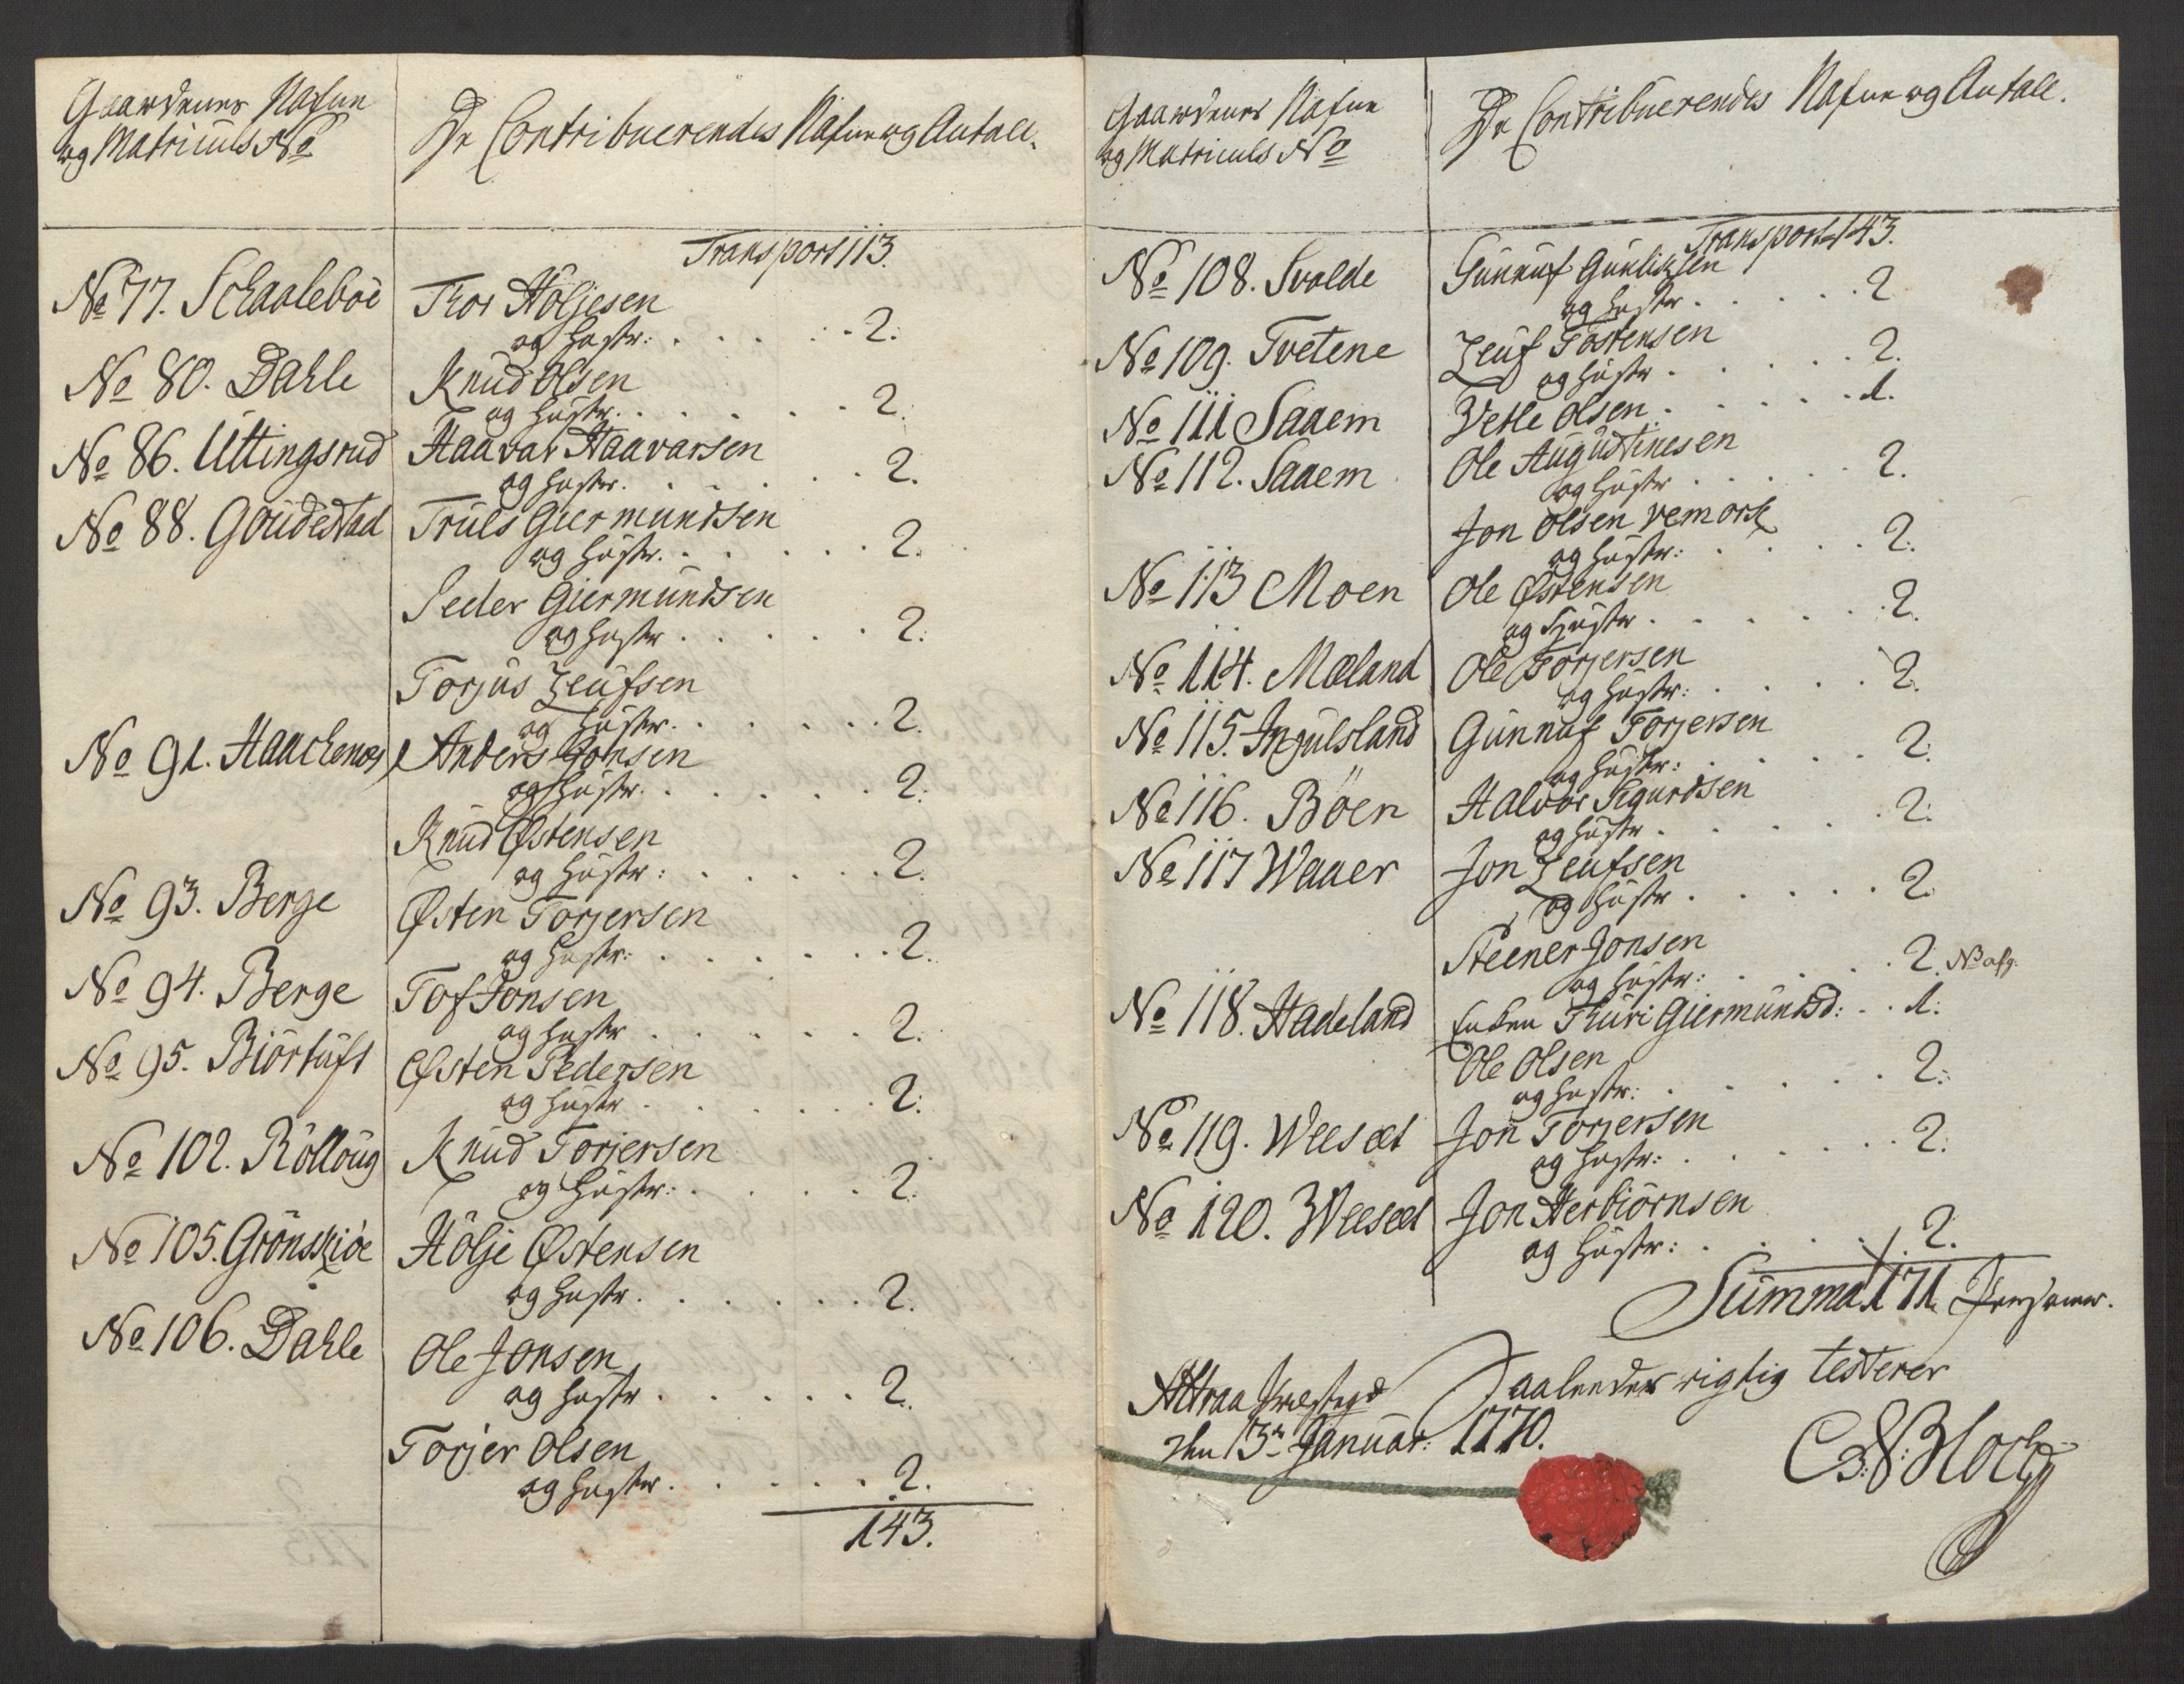 Gaardenes Nafne
og Matriculs No
De Contribuerendes Nafne og Antall.
Transport 113.
No 77. Schaaleboe Thor Höljesen
og Hustr: 2.
No 80. Dahle Knud Olsen
og Hustr. 2.
No 86. Uttingsrud Haavar Haavarsen
og Hustr. 2.
No 88. Goudestad Truls Giermundsen
og Hustr. 2.
Peder Giermundsen
og Hustr 2.
Torjus Leufsen
og Hustr. 2.
No 91. Haachenæs Anders Jonsen
og Hustr. 2.
Knud Østensen
og Hustr: 2.
No 93. Berge Østen Torjersen
og Hustr: 2.
No 94. Berge Tof Jonsen
og Hustr 2.
No 95. Biörtuft Østen Pedersen
og Hustr 2.
No 102. Rölloug Knud Torjersen
og Hustr: 2.
No 105. Grönskiöe Hölje Østensen
og Hustr. 2.
No 106. Dahle Ole Jonsen
og Hustr 2.
Torjer Olsen
og Hustr. 2.
143.
Gaardenes Nafne
og Matriculs No
De Contribuerendes Nafne og Antall.
Transport 143.
No 108. Svalde Gunnuf Gunliksen
og Hustr. 2
No 109. Tvetene Leuf Tostensen
og Hustr 2.
No 111 Saaem Vetle Olsen 1.
No 112. Saaem Ole Augustinesen
og Hustr 2.
Jon Olsen Vemork
og Hustr: 2.
No 113 Moen Ole Østensen
og Hustr 2.
No 114. Mæland Ole Torjersen
og Hustr: 2.
No 115. Ingulsland Gunnuf Torjersen
og Hustr: 2.
No 116. Böen Halvor Sigurdsen
og Hustr 2.
No 117 Waaer Jon Leufsen
og Hustr 2.
Steener Jonsen
og Hustr: 2.
No 118. Hadeland Enken Thuri Giermundsd: 1.
Ole Olsen
og Hustr: 2.
No 119. Weesæt Jon Torjersen
og Hustr: 2.
No 120. Weesæt Jon Herbiörnsen
og Hustr: 2.
Summa 171 Personer.
Attraa Præstegd Saaleedes rigtig testerer
den 13de Januar: 1770.